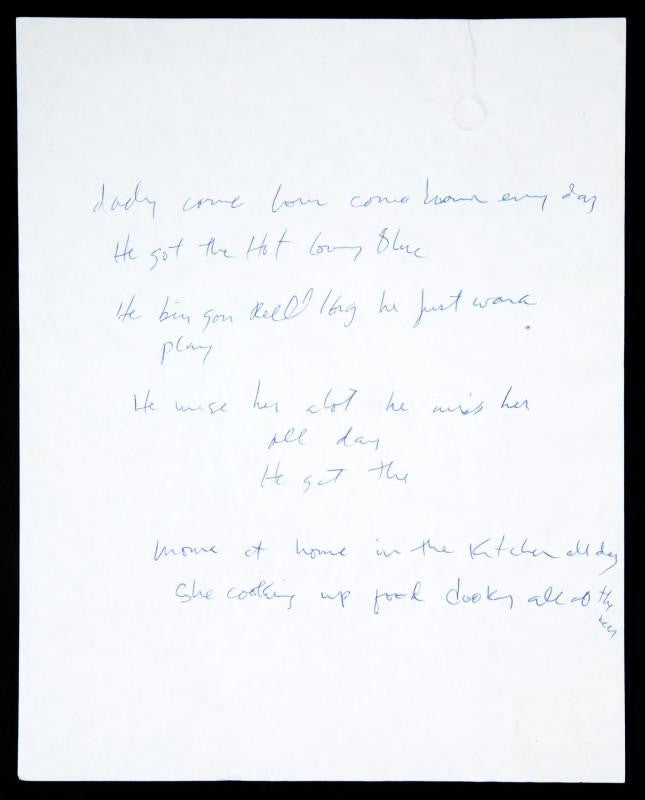 dady come hom come home evry day
He got the Hot loving Blue
He bin gon Reel long he Just wana
play
He mise her alot he miss her
all day
He got the
mome at home in the Kitchen all day
She cooking up food cooky all of the